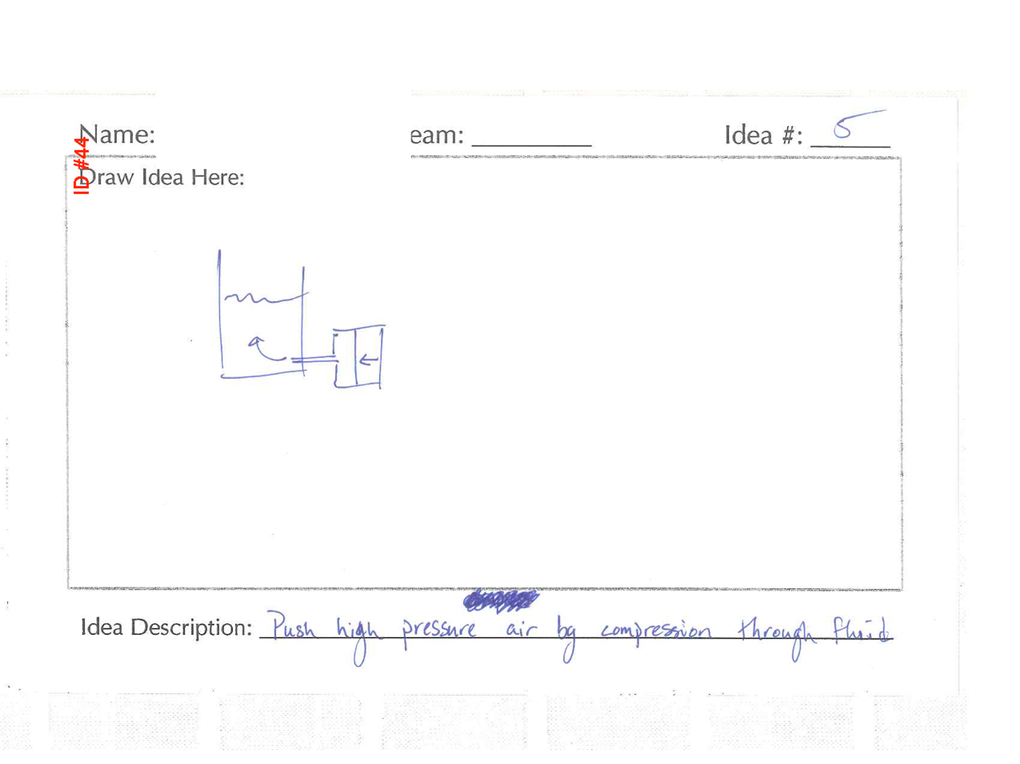 Name: eam: Idea #: 5
ID #44
Draw Idea Here:
Idea Description: Push high pressure air by compression through fluid